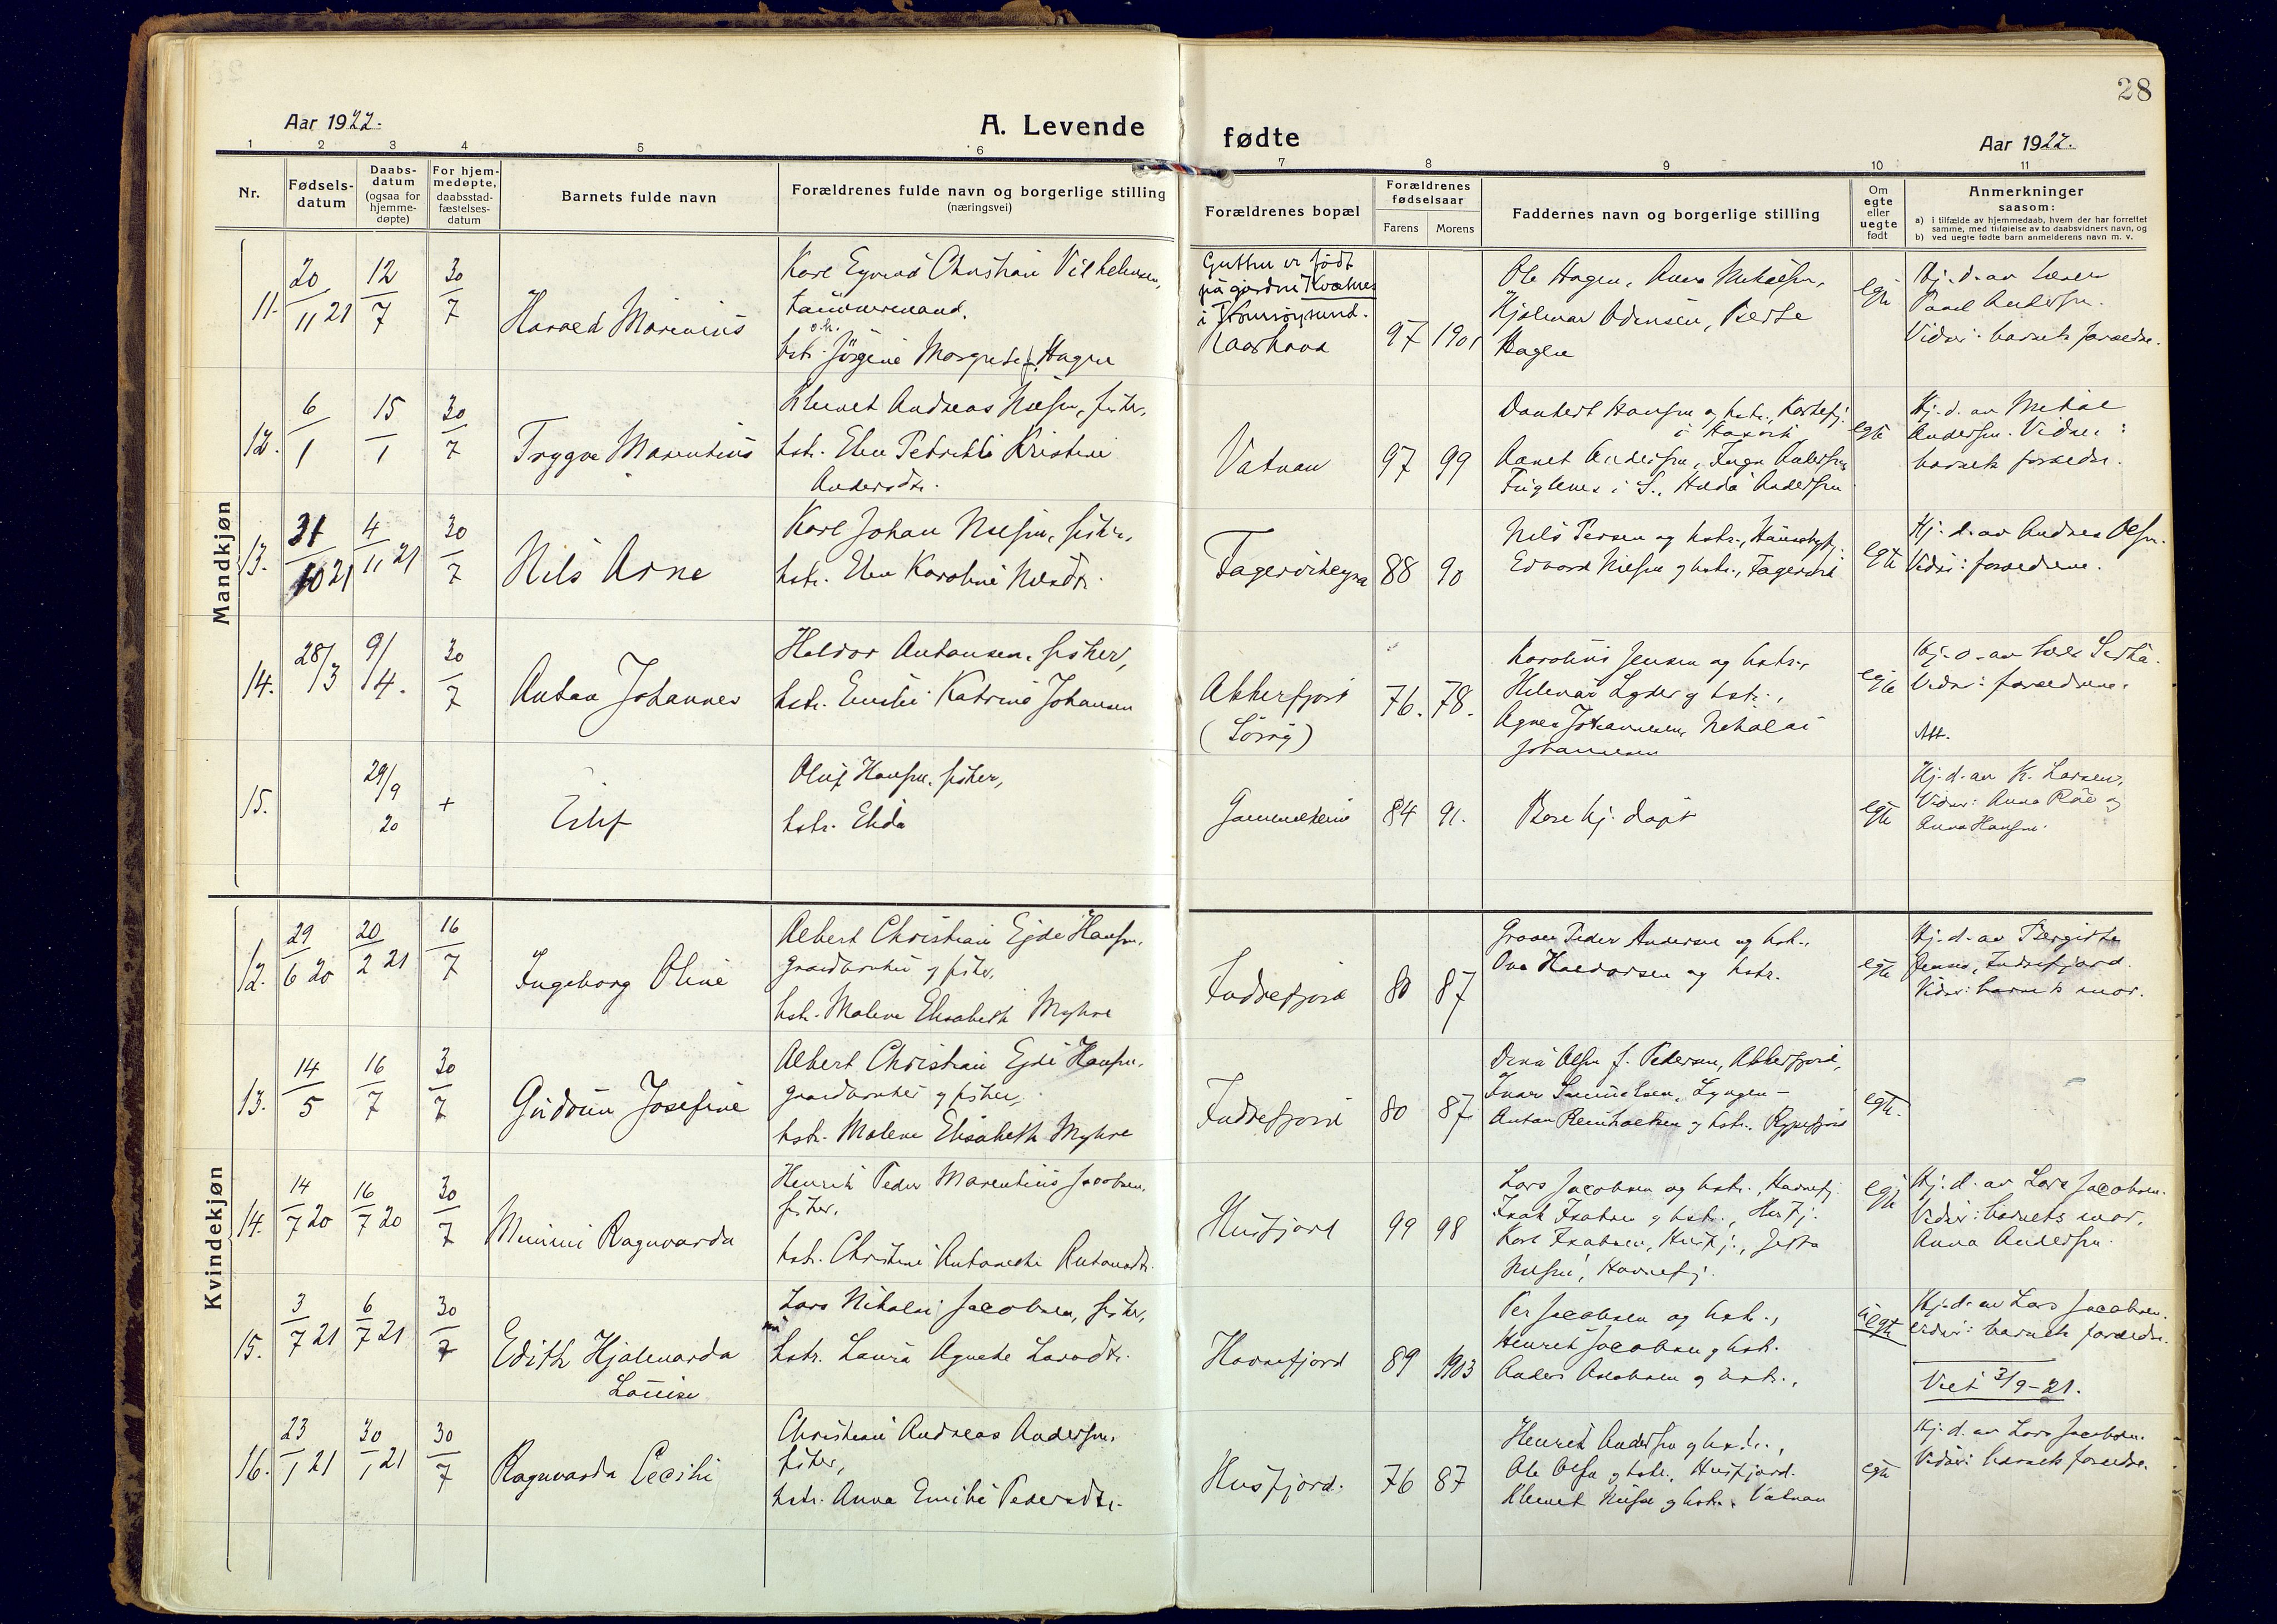 28
Aar 1922.
A. Levende
fødte
Aar 1922.
1 2 3 4 5 6 7 8 9 10 11
Nr.
Fødsels-
datum
Daabs-
datum
(ogsaa for
hjemme-
døpte)
For hjem-
medøpte,
daabsstad-
fæstelses-
datum
Barnets fulde navn
Forældrenes fulde navn og borgerlige stilling
(næringsvei)
Forældrenes bopæl
Forældrenes
fødselsaar
Farens Morens
Faddernes navn og borgerlige stilling
Om
egte
eller
uegte
født
Anmerkninger
saasom:
a) i tilfælde av hjemmedaab, hvem der har forrettet
samme, med tilføielse av to daabsvidners navn, og
b) ved uegte fødte barn anmelderens navn m. v.
Mandkjøn
11.
20/11 21
12/7
30/7
Harald Marinius
Karl Eyvind Christian Vilhelmsen,
tømmermand.
hstr. Jörgine Margrete f. Hagen
Gutten er födt
på garden Kvalnes
i Tromsöysund.
97 1901
Ole Hagen, Anna Mikalsen,
Hjalmar Edensen, Berte
Hagen
egte
Hj. d. av lærer
Paul Andersen.
Vidner: barnets foreldre.
12.
6/1
15/1
30/7
Trygve Marentius
Klemet Andreas Nilsen, fisker,
hstr. Elen Petrikke Kristine
Andersdtr.
Vatnan
97 99
Daubert Hansen og hstr., Kortefj.
Aanet Andersen, Inga Andersen
Fuglenes i S., Hilda Andersen
egte
Hj. d. av Mikal
Andersen. Vidner:
barnets foreldre.
13.
31/10 21
4/11 21
30/7
Nils Arne
Karl Johan Nilsen, fisker,
hstr. Elen Karoline Nilsdtr.
Fagervikeyra
88 90
Nils Persen og hstr.,
Edvard Nilsen og hstr., Fagervik
egte
Hj. d. av Andreas Olsen.
Vidner: foreldrene.
14.
28/3
9/4.
30/7
Anton Johannes
Haldor Antonsen, fisker,
hstr. Emilie Katrine Johansen
Akkerfjord
(Söröy)
76. 78.
Karolius Jensen og hstr.,
Hilmar Lyder og hstr.,
Agnes Johannesen, Nikolai
Johannesen
egte
Vidner: foreldrene.
Att.
15.
29/9 20
+
Eilif
Oluf Hansen, fisker,
hstr. Elida
84 91.
Bare hj. döpt
egte
Hj. d. av K. Larsen,
Vidner: Anna Röe og
Anna Hansen.
Kvindekjøn
12.
29/6 20
20/2 21
16/7
Ingeborg Oline
Albert Christian Ejde Hansen,
gaardbruker og fisker,
hstr. Malene Elisabeth Myhre
Indrefjord
80 87
Graver Peder Andersen og hstr.,
Ove Haldorsen og hstr.
egte
Hj. d. av Bergitte
Jensen, Indrefjord.
Vidner: barnets mor.
13.
14/5
16/7
30/7
Gudrun Josefine
Albert Christian Ejde Hansen,
gaardbruker og fisker,
hstr. Malene Elisabeth Myhre
Indrefjord
80 87
Dina Olsen f. Pedersen, Akkerfjord,
Ivar Samuelsen, Lyngen –
Anton Reinholtsen og hstr., Rypefjord
egte.
14.
14/7 20
16/7 20
30/7
Mimmi Ragnvarda
Henrik Peder Marentius Jacobsen,
fisker,
hstr. Christine Antonette Antonsdtr.
Husfjord
99 98
Lars Jacobsen og hstr., Havnefj.
Isak Isaksen og hstr., Husfj.
Karl Isaksen, Husfj.,
Nilsen, Havnefj.
egte
Hj. d. av Lars Jacobsen.
Vidner: barnets mor,
Anna Andersen.
15.
3/7 21
6/7 21
30/7
Edith Hjalmarda
Louise
Lars Nikolai Jacobsen, fisker,
hstr. Laura Agnete Larsdtr.
Havnefjord
89 1903
Per Jacobsen og hstr.,
Henrik Jacobsen og hstr.
Anders Jacobsen og hstr.,
uegte
Hj. d. av Lars Jacobsen.
Vidner: barnets foreldre.
Viet 3/9-21.
16.
23/1 21
30/1 21
30/7
Ragnvarda Cecilie
Christian Andreas Andersen,
fisker,
hstr. Anna Emilie Pedersdtr.
Husfjord.
76 87
Henrik Andersen og hstr.,
Ole Olsen og hstr., Husfjord.
Klemet Nilsen og hstr., Vatnan
egte
Hj. d. av Lars Jacobsen.
Vidner: barnets foreldre.